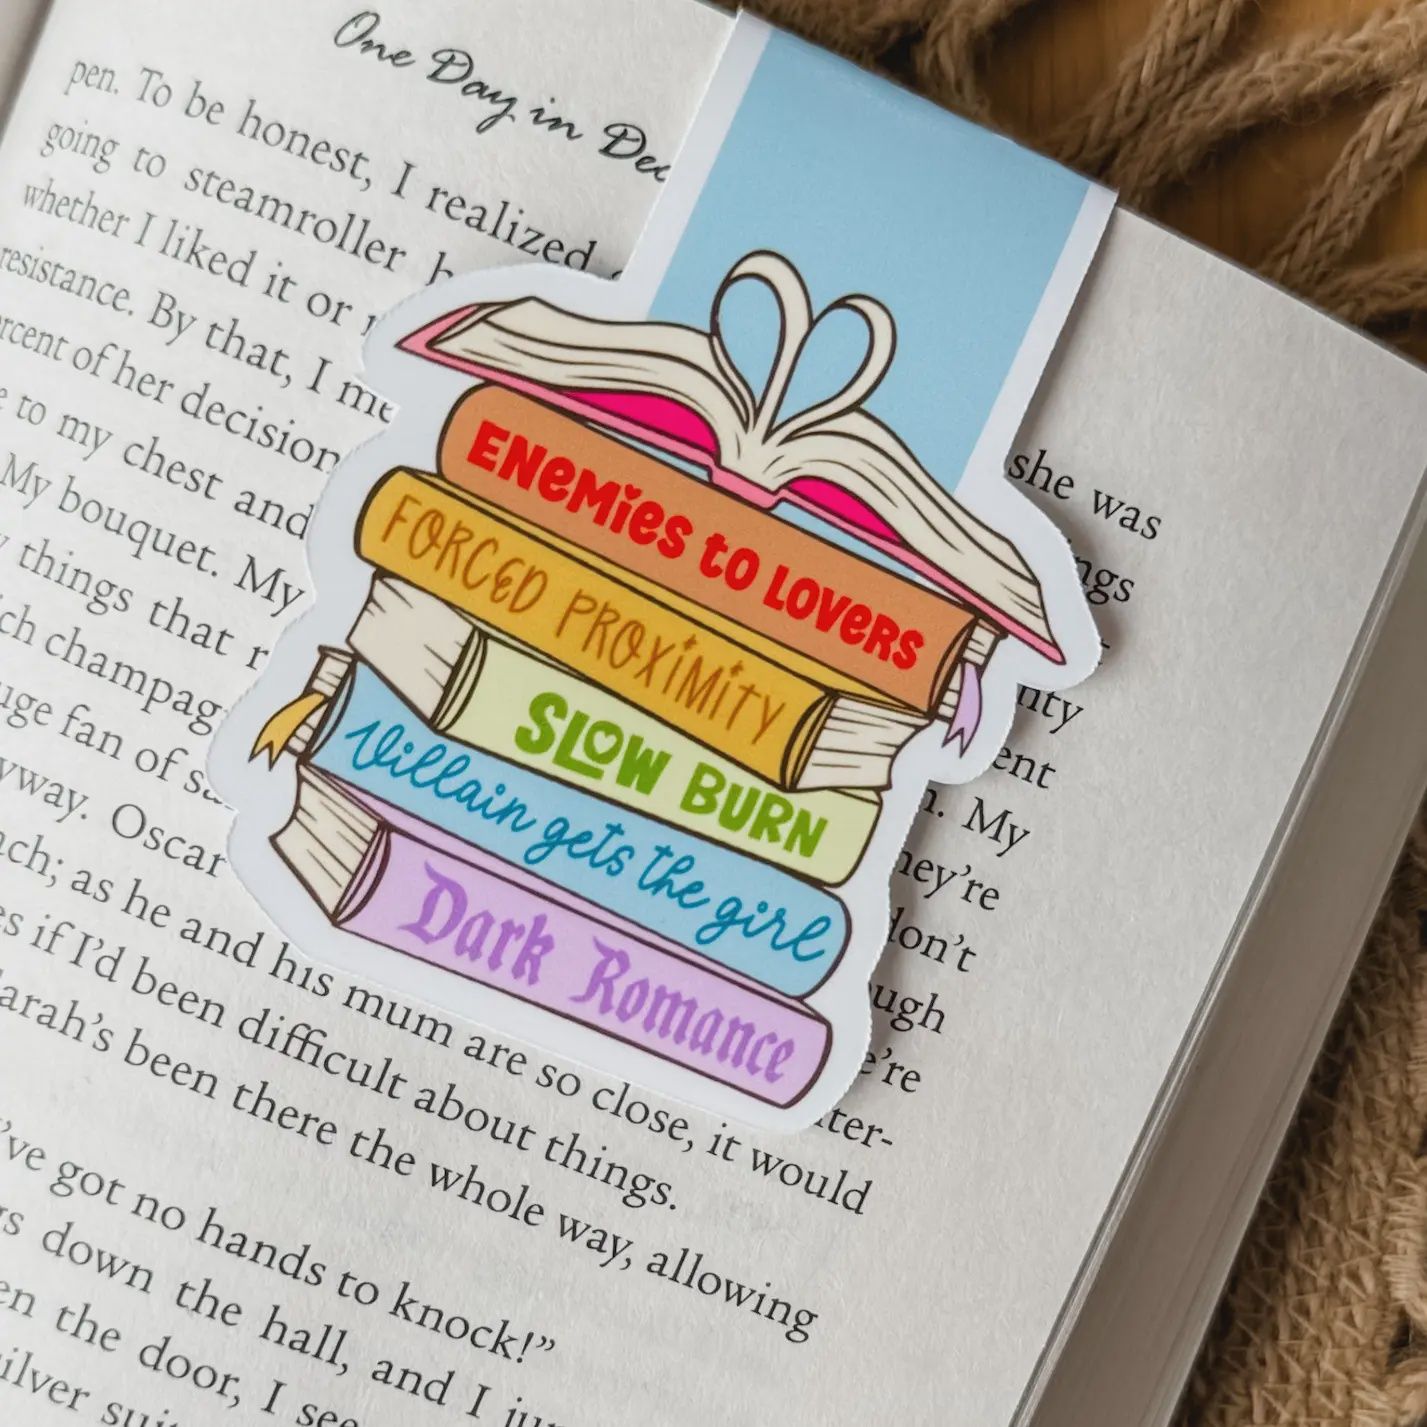 One Day in Dec
pen. To be honest, I realized
going to steamroller h
whether I liked it or
resistance. By that, I me
ercent of her decision
to my chest and
My bouquet. My
things that
ch champag
uge fan of
yway. Oscar
ch; as he and his mum are so close, it would
s if I'd been difficult about things.
arah's been there the whole way, allowing
've got no hands to knock!”
gs down the hall, and I
en the door, I see
ilver
she was
ngs
nty
ent
n. My
hey're
don't
ugh
e're
ter-
ENEMIES TO LOVERS
FORCED PROXIMITY
SLOW BURN
Villain gets the girl
Dark Romance